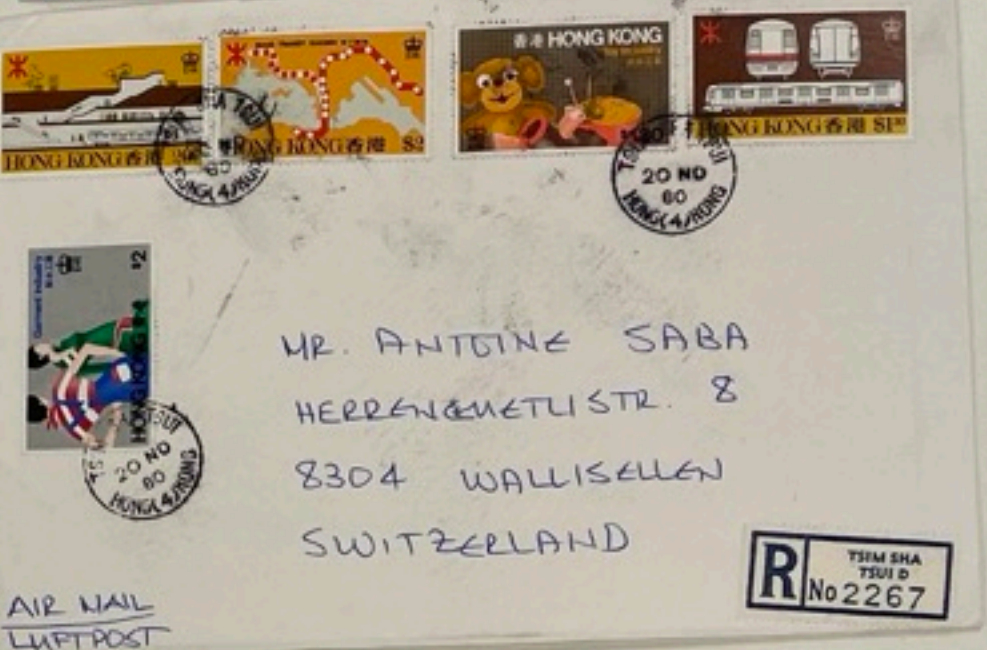 HONG KONG 香港
HONG KONG 香港 $2
香港 HONG KONG
HONG KONG 香港
TSUI
20 NO
80
HONG(4)KONG
Garment Industry
$2
HONG KONG
TSUI
20 NO
80
HONG(4)KONG
MR. ANTOINE SABA
8
8304 WALLISELLEN
SWITZERLAND
R
TSIM SHA
TSUI D
No 2267
AIR MAIL
LUFTPOST